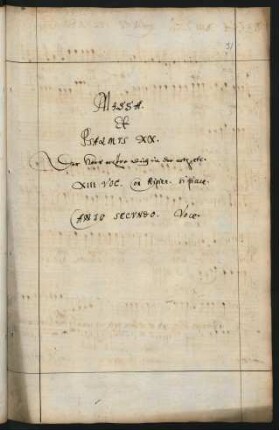 31
MISSA.
&
PSALMUS XX.
Der Herr erhöre dich in der noth etc.
XIII VOC. con Ripien. si piace.
CANTO SECUNDO. Voce.